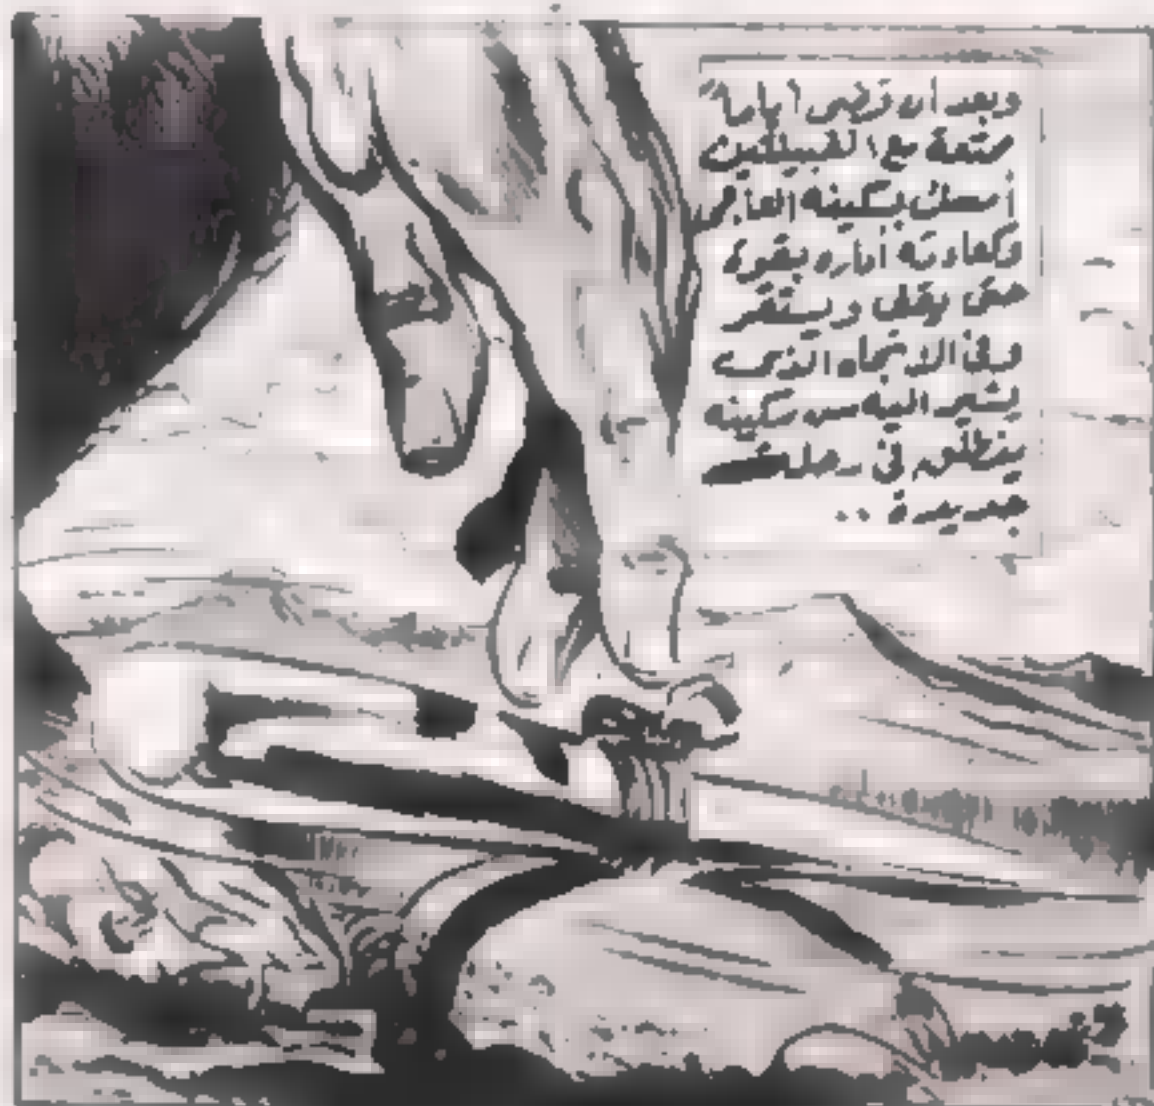 وبعد أن قضى أياماً
ممتعة مع القبيلتين
أمسك بسكينه العاجى
وكعادته أداره بقوة
حتى يقف ويستقر
وفى الاتجاه الذى
يشير اليه سن سكينه
ينطلق فى رحلة
جديدة ..